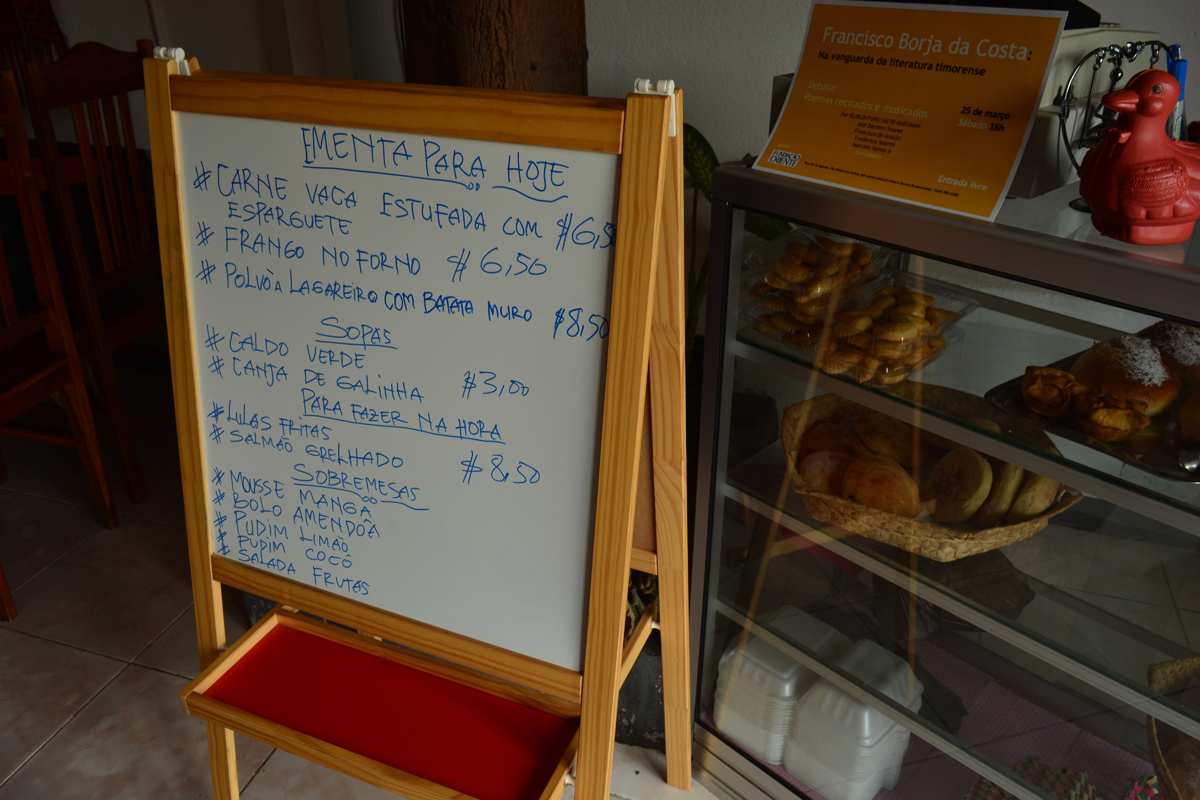 EMENTA PARA HOJE
# CARNE VACA ESTUFADA COM $6,50
ESPARGUETE
# FRANGO NO FORNO $6,50
# POLVO À LAGAREIRO COM BATATA MURO $8,50
SOPAS
# CALDO VERDE
# CANJA DE GALINHA $3,00
PARA FAZER NA HORA
# LULAS FRITAS
# SALMÃO GRELHADO $8,50
SOBREMESAS
# MOUSSE MANGA
# BOLO AMENDOÃ
# PUDIM LIMÃO
# PUDIM COCÔ
# SALADA FRUTAS
Francisco Borja da Costa:
Na vanguarda da literatura timorense
Debate
Poemas recitados e musicados
25 de março
Sábado, 16h
José Barreto Soares
Francisco de Araújo
Frederico Soares
FUNDAÇÃO
ORIENTE
Entrada livre